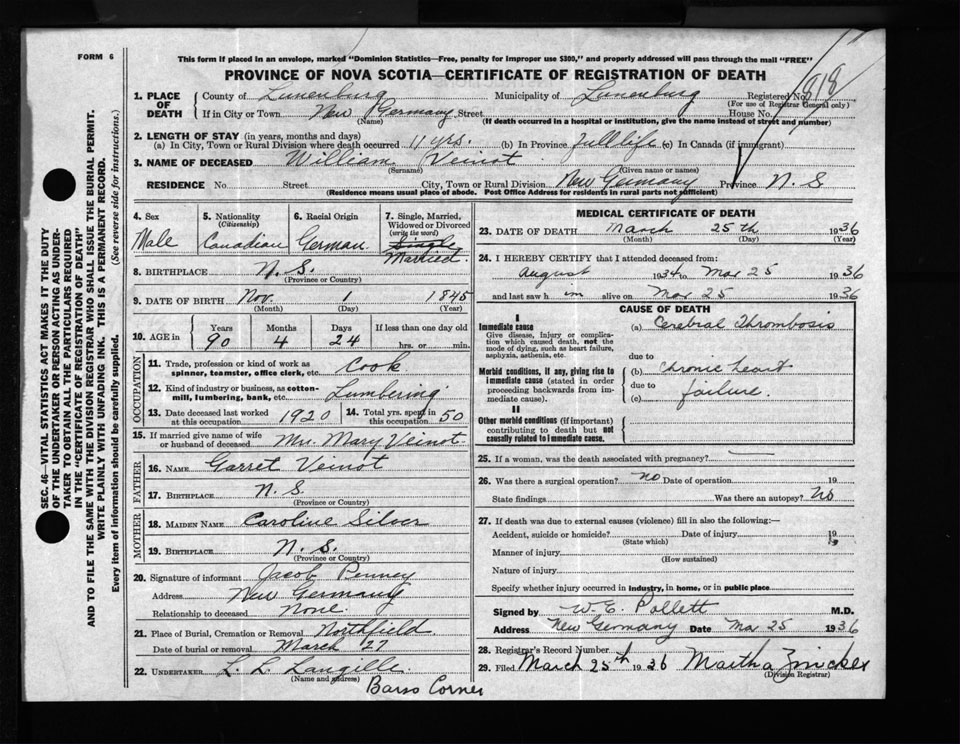 FORM 6
This form if placed in an envelope, marked "Dominion Statistics—Free, penalty for improper use $300," and properly addressed will pass through the mail "FREE"
PROVINCE OF NOVA SCOTIA—CERTIFICATE OF REGISTRATION OF DEATH
818
1. PLACE OF DEATH
County of Lunenburg Municipality of Lunenburg Registered No.
(For use of Registrar General only)
If in City or Town New Germany Street House No.
(Name) (If death occurred in a hospital or institution, give the name instead of street and number)
2. LENGTH OF STAY (in years, months and days)
(a) In City, Town or Rural Division where death occurred 11 yrs. (b) In Province full life (c) In Canada (if immigrant)
3. NAME OF DECEASED William Veinot
(Surname) (Given name or names)
RESIDENCE No. Street City, Town or Rural Division New Germany Province N. S
(Residence means usual place of abode. Post Office Address for residents in rural parts not sufficient)
4. Sex
Male
5. Nationality
(Citizenship)
Canadian
6. Racial Origin
German.
7. Single, Married, Widowed or Divorced
(write the word)
Single
Married.
8. BIRTHPLACE N. S.
(Province or Country)
9. DATE OF BIRTH Nov. 1 1845
(Month) (Day) (Year)
10. AGE in
Years Months Days If less than one day old
90 4 24 hrs. or min.
OCCUPATION
11. Trade, profession or kind of work as spinner, teamster, office clerk, etc. Cook.
12. Kind of industry or business, as cotten-mill, lumbering, bank, etc. Lumbering
13. Date deceased last worked at this occupation 1920 14. Total yrs. spent in this occupation 50
15. If married give name of wife or husband of deceased Mrs. Mary Veinot
FATHER
16. NAME Garret Veinot
17. BIRTHPLACE N. S.
(Province or Country)
MOTHER
18. MAIDEN NAME Caroline Silver
19. BIRTHPLACE N. S.
(Province or Country)
20. Signature of informant Jacob Penney
Address New Germany
Relationship to deceased None.
21. Place of Burial, Cremation or Removal Northfield
Date of burial or removal March 27
22. UNDERTAKER L. L. Langille.
(Name and address)
Barss Corner
MEDICAL CERTIFICATE OF DEATH
23. DATE OF DEATH March 25th 1936
(Month) (Day) (Year)
24. I HEREBY CERTIFY that I attended deceased from:
August 1934 to Mar 25 1936
and last saw h im alive on Mar 25 1936
CAUSE OF DEATH
I
Immediate cause
Give disease, injury or complication which caused death, not the mode of dying, such as heart failure, asphyxia, asthenia, etc.
(a) Cerebral Thrombosis
due to
Morbid conditions, if any, giving rise to immediate cause (stated in order proceeding backwards from immediate cause).
(b) chronic heart
due to
(c) failure.
II
Other morbid conditions (if important) contributing to death but not causally related to immediate cause.
25. If a woman, was the death associated with pregnancy?
26. Was there a surgical operation? no Date of operation 19
State findings Was there an autopsy? No
27. If death was due to external causes (violence) fill in also the following:—
Accident, suicide or homicide? Date of injury 19
(State which)
Manner of injury
(How sustained)
Nature of injury
Specify whether injury occurred in industry, in home, or in public place
Signed by W. E. Pollett M.D.
Address New Germany Date Mar 25 1936
28. Registrar's Record Number
29. Filed March 25th 1936 Martha Zwicker
(Division Registrar)
SEC. 46—VITAL STATISTICS ACT MAKES IT THE DUTY
OF THE UNDERTAKER OR PERSON ACTING AS UNDER-
TAKER TO OBTAIN ALL THE PARTICULARS REQUIRED
IN THE "CERTIFICATE OF REGISTRATION OF DEATH"
AND TO FILE THE SAME WITH THE DIVISION REGISTRAR WHO SHALL ISSUE THE BURIAL PERMIT.
WRITE PLAINLY WITH UNFADING INK. THIS IS A PERMANENT RECORD.
Every item of information should be carefully supplied. (See reverse side for instructions.)